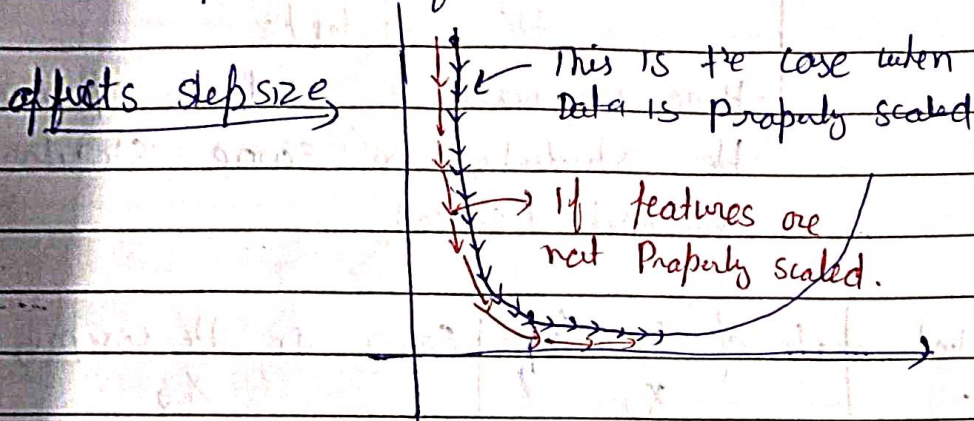 affects stepsize
This is the case when
Data is Properly scaled
If features are
not Properly scaled.